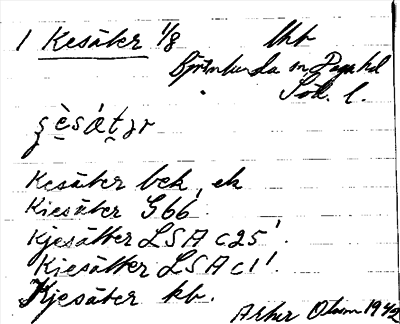 1 Kesäter 1/8 lhb
Björnlunda sn, Daga hd
Söd. l.
Kesäter bek, ek
Kiesäter G66
Kjesätter LSA c25'
Kiesätter LSA c1'
Kjesäter kb.
1942